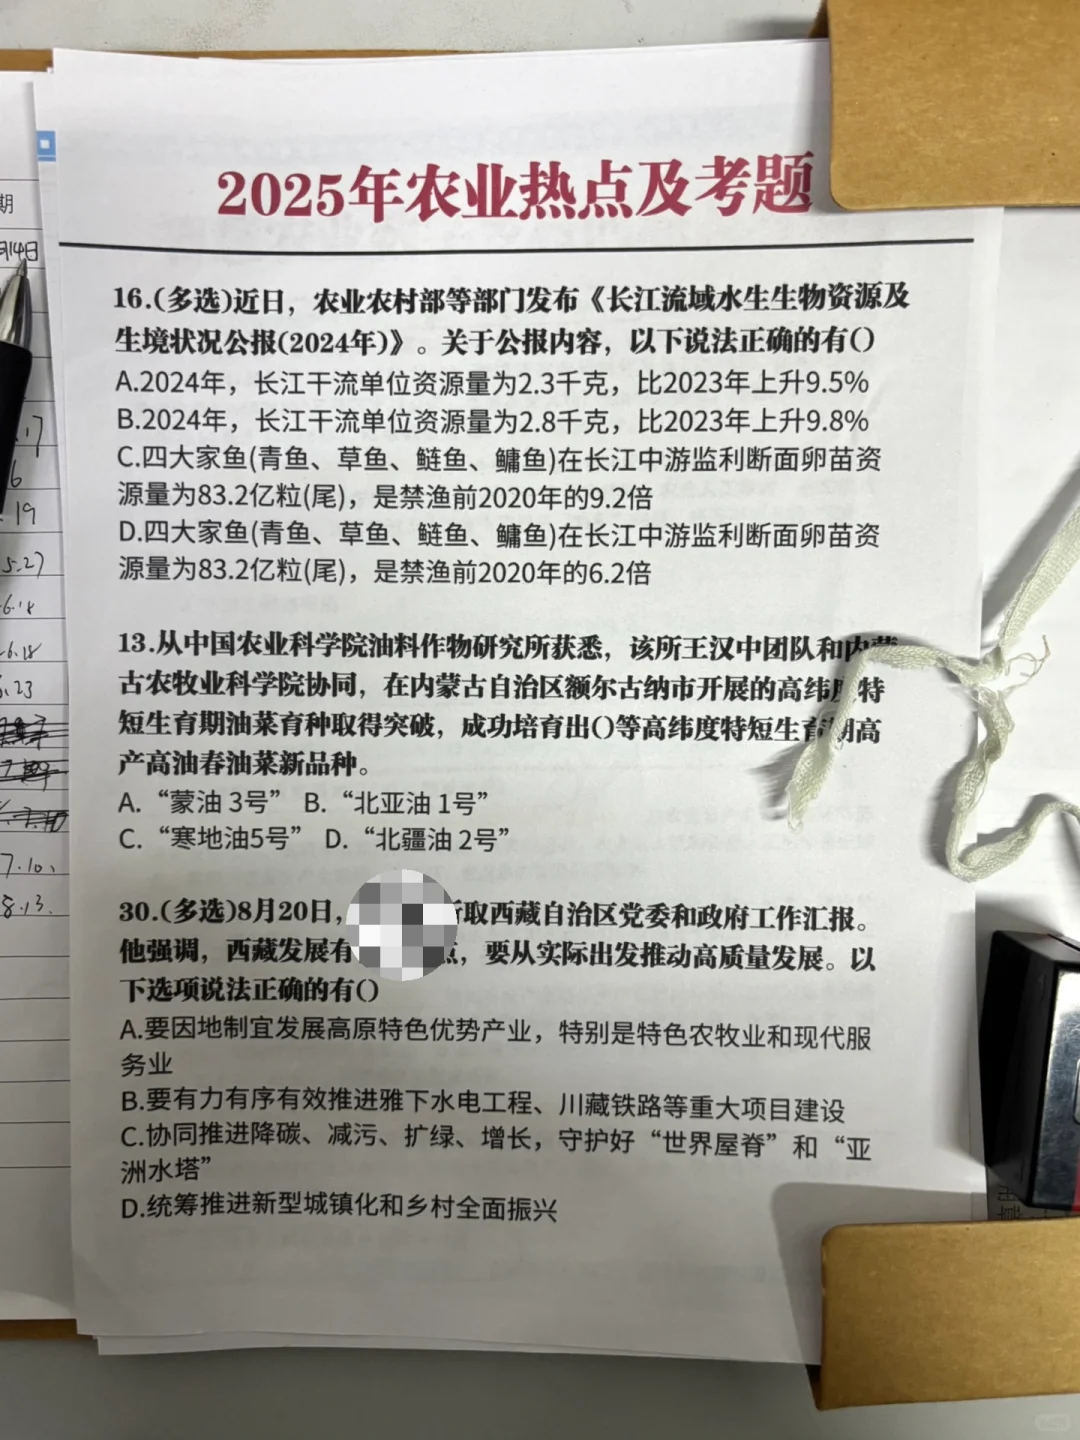 2025年农业热点及考题
16.(多选)近日，农业农村部等部门发布《长江流域水生生物资源及
生境状况公报(2024年)》。关于公报内容，以下说法正确的有()
A.2024年，长江干流单位资源量为2.3千克，比2023年上升9.5%
B.2024年，长江干流单位资源量为2.8千克，比2023年上升9.8%
C.四大家鱼(青鱼、草鱼、鲢鱼、鳙鱼)在长江中游监利断面卵苗资
源量为83.2亿粒(尾)，是禁渔前2020年的9.2倍
D.四大家鱼(青鱼、草鱼、鲢鱼、鳙鱼)在长江中游监利断面卵苗资
源量为83.2亿粒(尾)，是禁渔前2020年的6.2倍
13.从中国农业科学院油料作物研究所获悉，该所王汉中团队和内蒙
古农牧业科学院协同，在内蒙古自治区额尔古纳市开展的高纬度特
短生育期油菜育种取得突破，成功培育出()等高纬度特短生育期高
产高油春油菜新品种。
A.“蒙油 3号” B.“北亚油 1号”
C.“寒地油5号” D.“北疆油 2号”
30.(多选)8月20日，取西藏自治区党委和政府工作汇报。
他强调，西藏发展有点，要从实际出发推动高质量发展。以
下选项说法正确的有()
A.要因地制宜发展高原特色优势产业，特别是特色农牧业和现代服
务业
B.要有力有序有效推进雅下水电工程、川藏铁路等重大项目建设
C.协同推进降碳、减污、扩绿、增长，守护好“世界屋脊”和“亚
洲水塔”
D.统筹推进新型城镇化和乡村全面振兴
期
月14日
.17
6
.19
5.27
6.18
6.18
.23
7.10.
8.13.